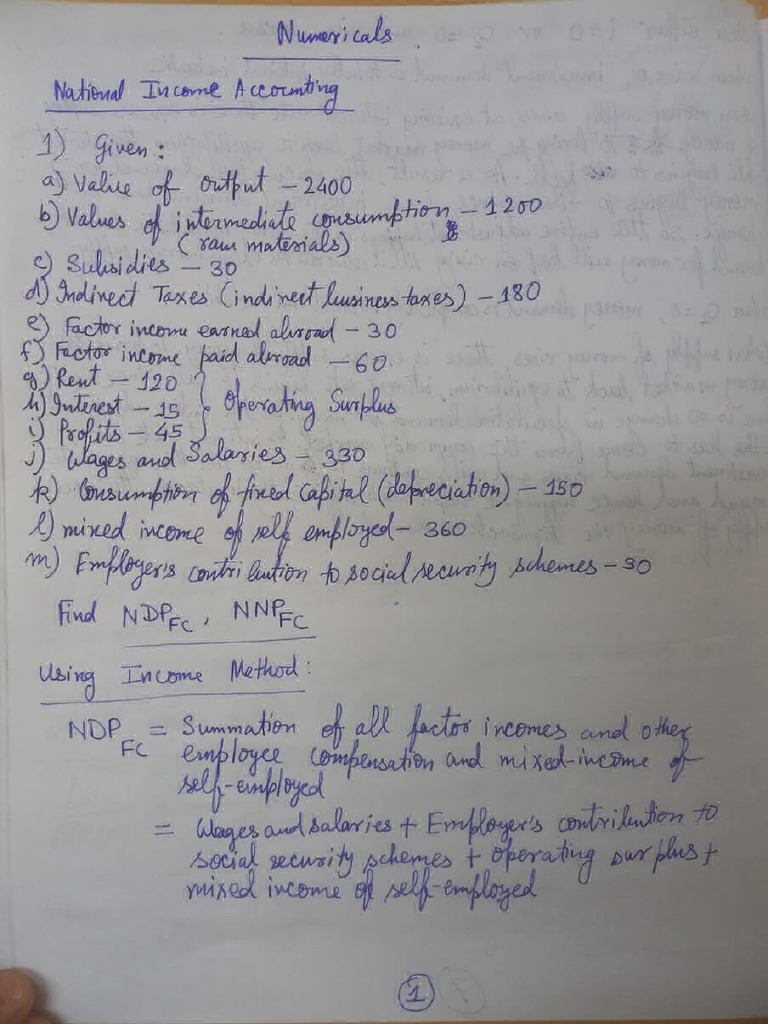 Numericals
National Income Accounting
1) Given :
a) Value of output - 2400
b) Values of intermediate consumption - 1200
(raw materials)
c) Subsidies - 30
d) Indirect Taxes (indirect business taxes) - 180
e) Factor income earned abroad - 30
f) Factor income paid abroad - 60
g) Rent - 120
h) Interest - 15 } Operating Surplus
i) Profits - 45
j) Wages and Salaries - 330
k) Consumption of fixed capital (depreciation) - 150
l) mixed income of self employed - 360
m) Employer's contribution to social security schemes - 30
Find NDP FC, NNP FC
Using Income Method :
NDP FC = Summation of all factor incomes and other
employee compensation and mixed-income of
self-employed
= Wages and salaries + Employer's contribution to
social security schemes + operating surplus +
mixed income of self-employed
1